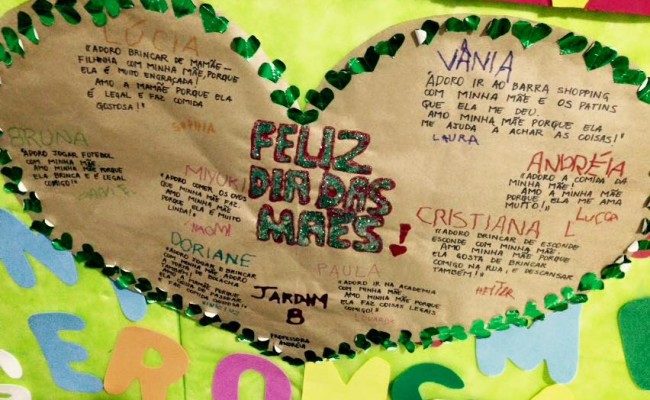 LÚCIA
"ADORO BRINCAR DE MAMÃE-
FILHINHA COM MINHA MÃE, PORQUE
ELA É MUITO ENGRAÇADA!
AMO A MAMÃE PORQUE ELA
É LEGAL E FAZ COMIDA
GOSTOSA!"
SOPHIA
BRUNA
"ADORO JOGAR FUTEBOL
COM MINHA MÃE
AMO MINHA MÃE PORQUE
ELA BRINCA E É LEGAL
COMIGO!"
MIYUKI
"ADORO COMER OS OVOS
QUE MINHA MÃE FAZ.
AMO MINHA MÃE
PORQUE ELA É MUITO
LINDA!"
NAOMI
DORIANE
"ADORO JOGAR E BRINCAR
COM MINHA MÃE ADORO
BOLACHA
AMO MINHA MÃE PORQUE
GOSTA DE PASSEAR
FAZ COMIDA
FELIZ
DIA DAS
MÃES!
JARDIM
B
PROFESSORA
ANDRÉIA
PAULA
"ADORO IR NA ACADEMIA
COM MINHA MÃE
AMO MINHA MÃE PORQUE
ELA FAZ COISAS LEGAIS
COMIGO!"
VÂNIA
"ADORO IR AO BARRA SHOPPING
COM MINHA MÃE E OS PATINS
QUE ELA ME DEU.
AMO MINHA MÃE PORQUE ELA
ME AJUDA A ACHAR AS COISAS!"
LAURA
ANDRÉIA
"ADORO A COMIDA DA
MINHA MÃE!
AMO A MINHA MÃE
PORQUE ELA ME AMA
MUITO!"
LUCCA L
CRISTIANA
"ADORO BRINCAR DE ESCONDE
ESCONDE COM MINHA MÃE.
AMO MINHA MÃE PORQUE
ELA GOSTA DE BRINCAR
COMIGO NA RUA, E DESCANSAR
TAMBÉM!"
HEITOR